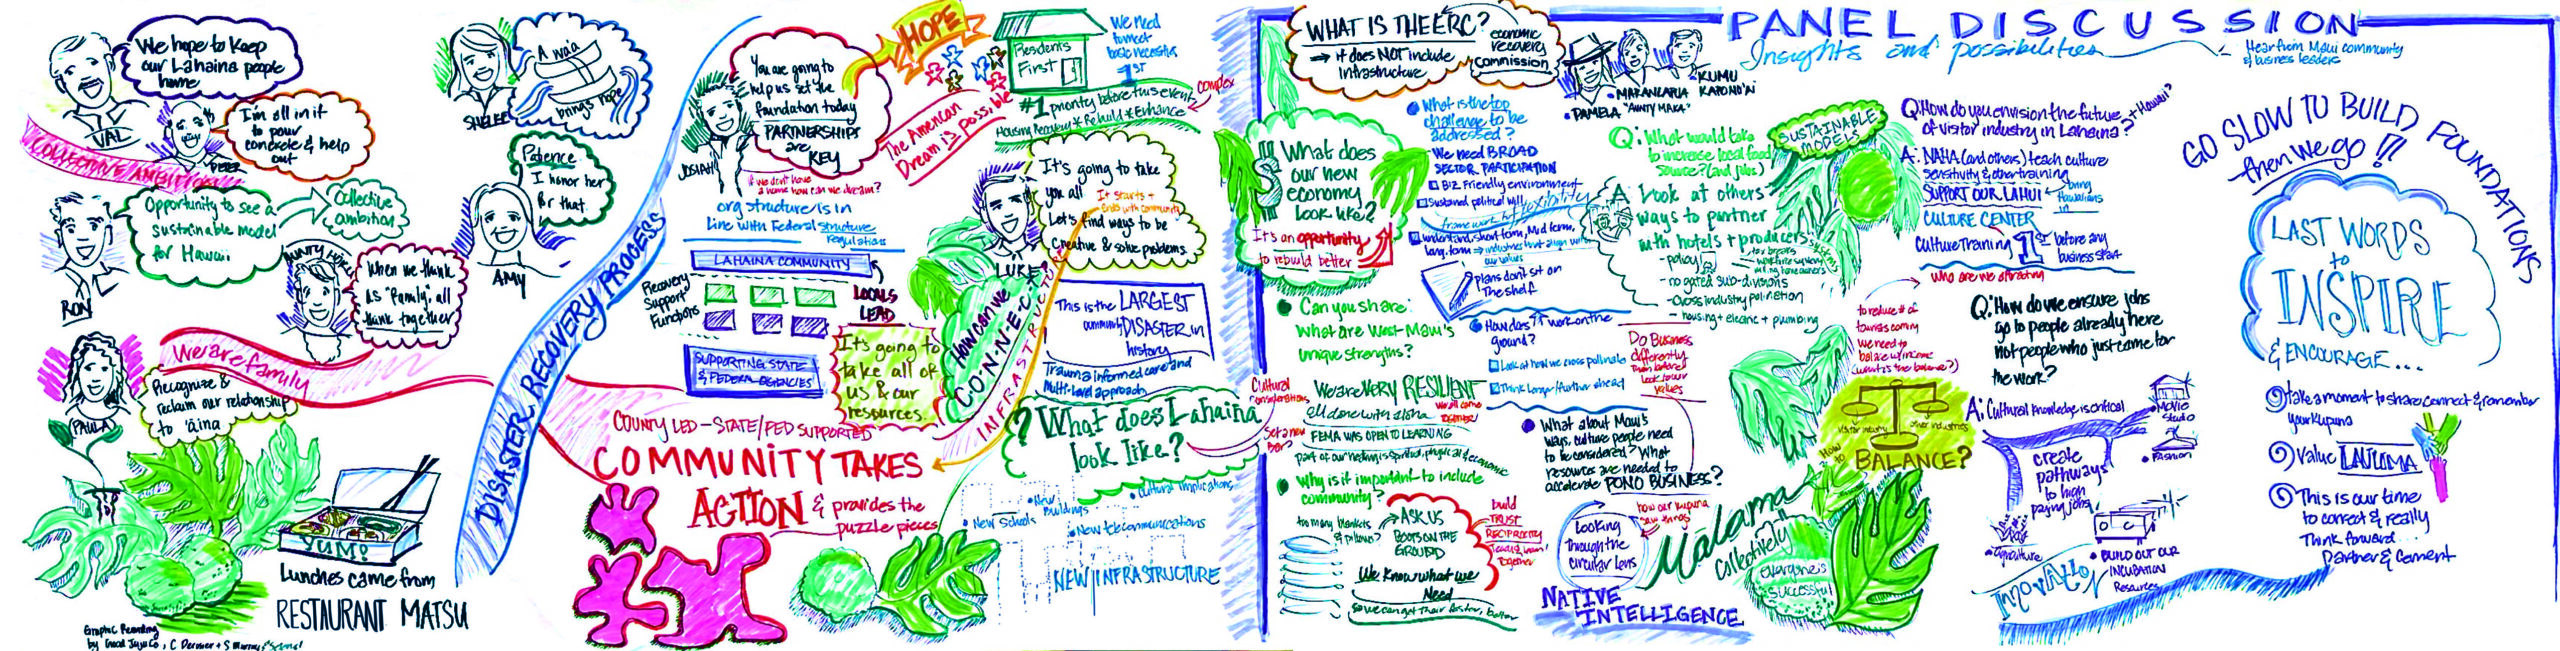 We hope to keep
our Lahaina people
home
VAL
I'm all in if
to pour
concrete & help
out
PETER
COLLECTIVE AMBITION
Opportunity to see a
sustainable model
for Hawaii
Collective
ambition
RON
When we think
as "Family" all
think together
We are family
PAULA
Recognize &
reclaim our relationship
to 'āina
YUM!
Lunches came from
RESTAURANT MATSU
Graphic Recording
A wa'a
brings hope
Patience
I honor her
for that
AMY
DISASTER RECOVERY PROCESS
JOSIAH
You are going to
help us set the
foundation today
PARTNERSHIPS
are
KEY
HOPE
The American
Dream is possible
if we don't have
a home how can we dream?
org structure is in
line with Federal structure
Regulations
LAHAINA COMMUNITY
Recovery
Support
Functions
LOCALS
LEAD
SUPPORTING STATE
& FEDERAL AGENCIES
It's going to
take all of
us & our
resources
COUNTY LED - STATE/FED SUPPORTED
COMMUNITY TAKES
ACTION & provides the
puzzle pieces
Residents
First
We need
to meet
basic necessities
1ST
#1 priority before this event
complex
Housing Recovery * Rebuild * Enhance
LUKE
It's going to take
you all
It starts +
ends with community
Let's find ways to be
creative & solve problems
How can we
C.O.N.N.E.C.T
INFRASTRUCTURE
This is the LARGEST
community DISASTER in
history
Trauma informed care and
multi-level approach
? What does Lahaina
look like?
Cultural
considerations
Set a new
Bar?
• New Schools
• New
Buildings
• Cultural implications
• New telecommunications
NEW INFRASTRUCTURE
WHAT IS THE ERC?
economic
recovery
commission
→ it does NOT include
infrastructure
$ What does
our new
economy
look like?
It's an opportunity
to rebuild better
Can you share:
what are West Maui's
unique strengths?
We are VERY RESILIENT
all done with aloha
we all come
together!
FEMA WAS OPEN TO LEARNING
part of our healing is spiritual, physical & economic
Why is it important to include
community?
too many blankets
& pillows?
ASK US
BOOTS ON THE
GROUND
We know what we
Need
so we can get there faster, better
build
TRUST
RECIPROCITY
Together
What is the top
challenge to be
addressed?
We need BROAD
SECTOR PARTICIPATION
Biz Friendly environment
Sustained political will
frame work flexibility
understand, short term, mid term,
long term → industries that align with
our values
plans don't sit on
the shelf
How does it work on the
ground?
Look at how we cross pollinate
Think longer/further ahead
Do Business
differently
than before!
look to our
values
What about Maui's
ways, culture people need
to be considered? What
resources are needed to
accelerate PONO BUSINESS?
Looking
through the
circular lens
how our kupuna
saw things
NATIVE
INTELLIGENCE
PANEL DISCUSSION
Insights and possibilities
Hear from Maui community
& business leaders
• PAMELA "AUNTY MAKA"
• KUMU
KAPONO'AI
Q: What would take
to increase local food
source? (and jobs)
SUSTAINABLE
MODELS
A: Look at others
ways to partner
with hotels + producers
- policy
- no gated sub-divisions
- cross industry pollination
- housing + electric + plumbing
Malama
Collectively
everyone's
successful
Q: How do you envision the future
of visitor industry in Lahaina? + Hawaii?
A: NAHA (and others) teach culture
sensitivity & other training
SUPPORT OUR LAHUI
bring
Hawaiians
in
CULTURE CENTER
Culture Training 1ST before any
business start
who are we attracting
to reduce # of
tourists coming
we need to
balance w/ income
(what is the balance?)
visitor industry
other industries
How
to BALANCE?
Q: How do we ensure jobs
go to people already here
not people who just came for
the work?
A: Cultural knowledge is critical
create
pathways
to high
paying jobs
• Movie
Studio
• FASHION
• Agriculture
• BUILD OUT OUR
INCUBATION
Resources
INNOVATION
GO SLOW TO BUILD FOUNDATIONS
then we go!!!
LAST WORDS
to
INSPIRE
& ENCOURAGE...
① take a moment to share connect & remember
your kupuna
② Value LAULIMA
③ This is our time
to correct & really
Think forward...
Partner & Cement